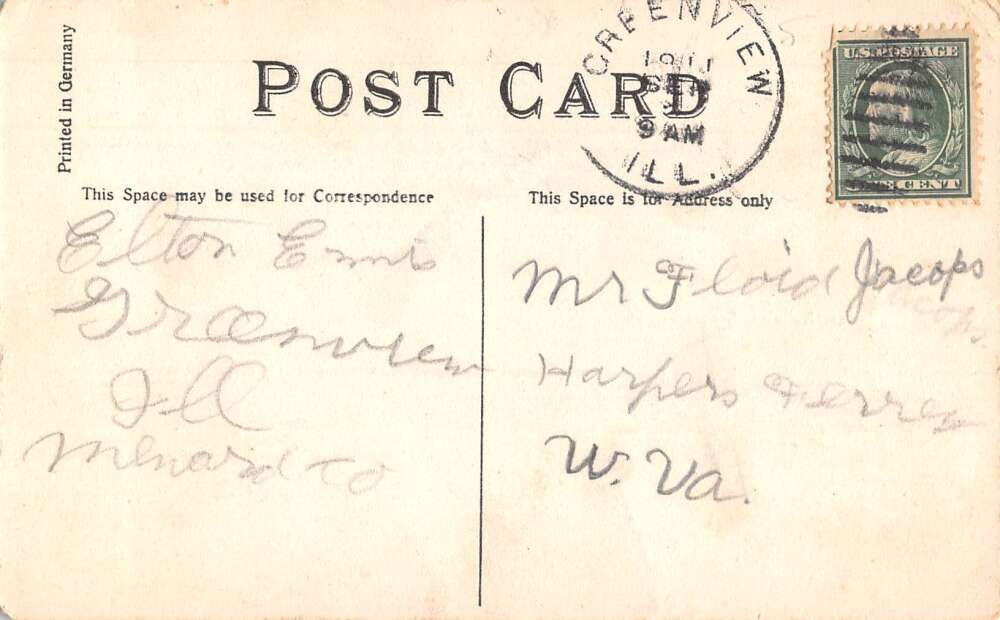 Printed in Germany
POST CARD
GREENVIEW
1911
SEP
9 AM
ILL.
U.S. POSTAGE
CENT
This Space may be used for Correspondence
This Space is for Address only
Elton Ennis
Greenview
Ill
Menard Co
Mr Floid Jacops
Harpers Ferrey
W. Va.